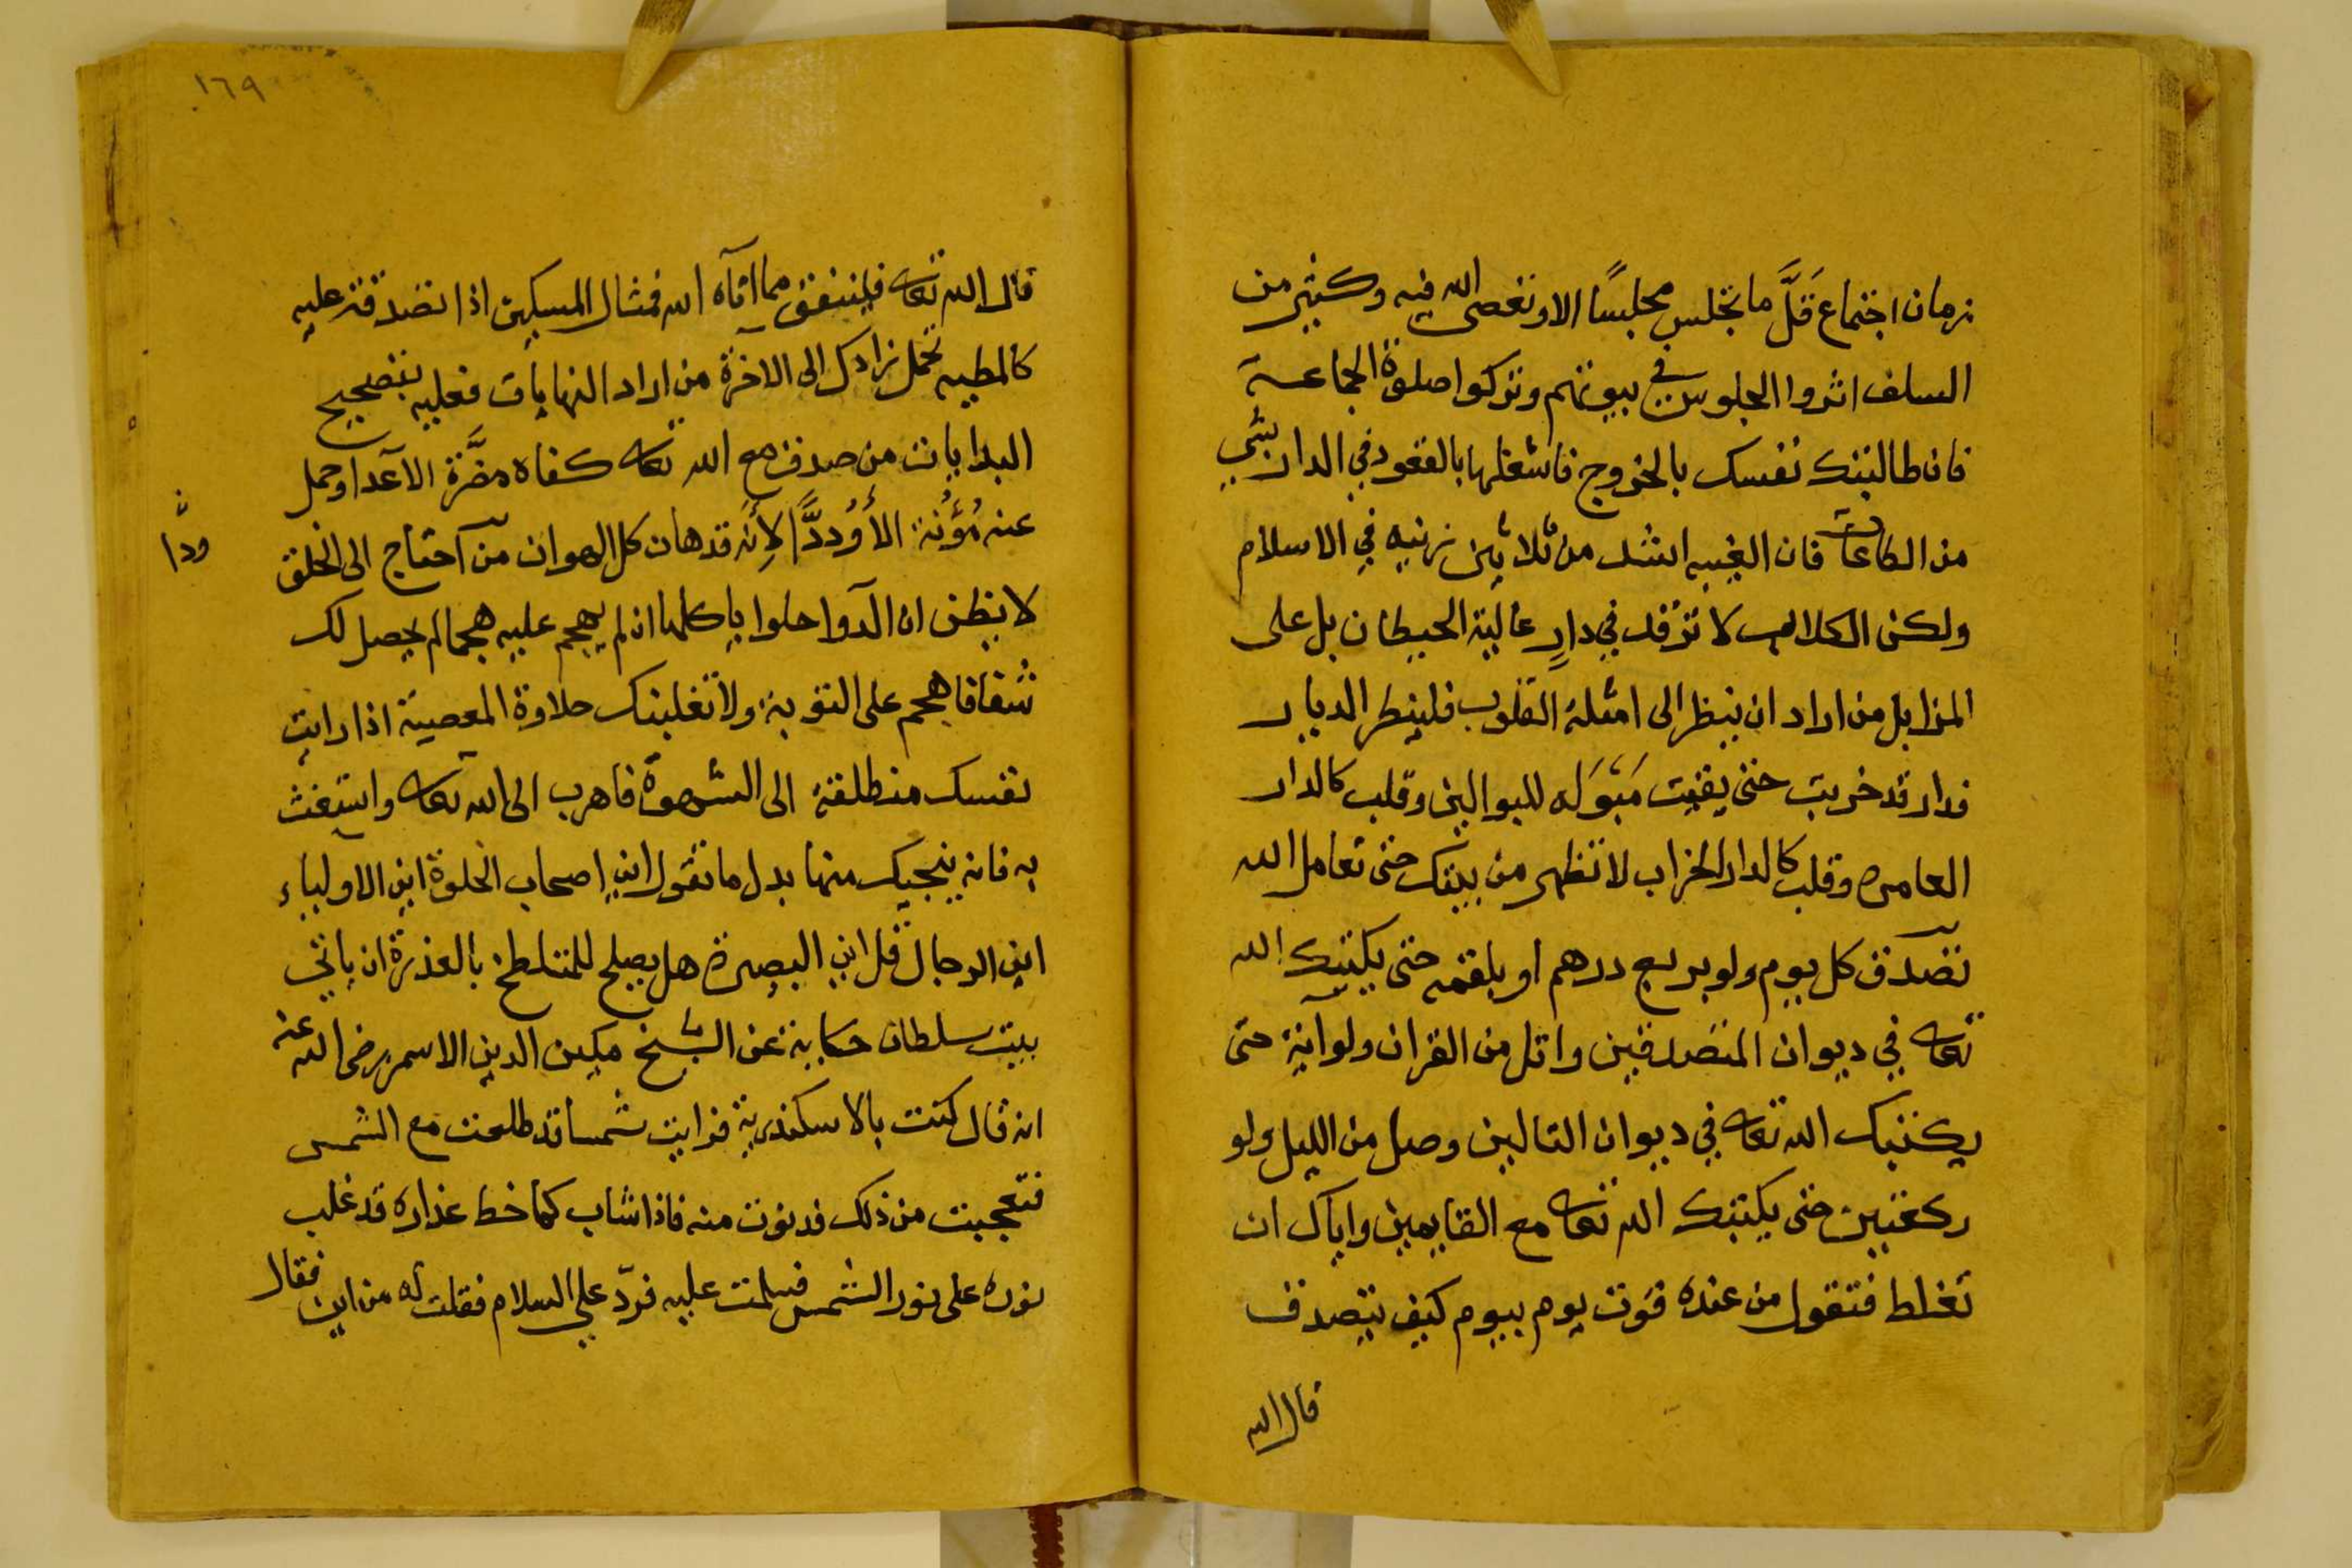 زمان اجتماع قَلَّ ما تجلس مجلسًا الا وتغصى الله فيه وكثير من
السلف اثروا الجلوس في بيوتهم وتركوا صلوة الجماعة
فان طالبتك نفسك بالخروج فاشغلها بالقعود في الدار بشي
من الطاعات فان الغيبه اشد من ثلاثين زنيه في الاسلام
ولكن الكلاب لا ترقد في دارٍ عالية الحيطان بل على
المزابل من اراد ان ينظر الى امثلة القلوب فلينظر الديار
فدار قد خربت حتى بقيت مَبْوَله للبوالين وقلب كالدار
العامره وقلب كالدار الخراب لا تظهر من بيتك حتى تعامل الله
تصدق كل يوم ولو بربع درهم او بلقمه حتى يكتبك الله
تعالى في ديوان المتصدقين واتل من القران ولو آية حتى
يكتبك الله تعالى في ديوان التالين وصل من الليل ولو
ركعتين حتى يكتبك الله تعالى مع القايمين واياك ان
تغلط فتقول من عنده قوت يوم بيوم كيف يتصدق
قال الله
١٦٩
قال الله تعالى فلينفق مما اتآه الله فمثال المسكين اذا تصدقت عليه
كالمطيه تحمل زادك الى الاخرة من اراد النهايات فعليه بتصحيح
البدايات من صدق مع الله تعالى كفاه مضَّرة الاعدا وحمل
عنه مُؤُنة الأَوُددَّا لأنه قد هان كل الهوان من احتاج الى الخلق
ودّا
لا يظن ان الدوا حلوا ياكلها ان لم يهجم عليه هجما لم يحصل لك
شفافا هجم على التوبة ولا تغلبنك حلاوة المعصية اذا رايت
نفسك منطلقة الى الشهوة فاهرب الى الله تعالى واستغث
به فانه ينجيك منها بدل ما تقول اين اصحاب الخلوة اين الاولياء
اين الرجال قل اين البصيرة هل يصلح للمتلطخ بالعذرة ان ياتي
بيت سلطان حكاية عن الشيخ مكين الدين الاسمر رضى الله عنه
انه قال كنت بالاسكندرية فرايت شمسا قد طلعت مع الشمس
فتعجبت من ذلك فدنوت منه فاذا شاب كما خط عذاره قد غلب
نوره على نور الشمس فسلمت عليه فردّ علي السلام فقلت له من اين فقال